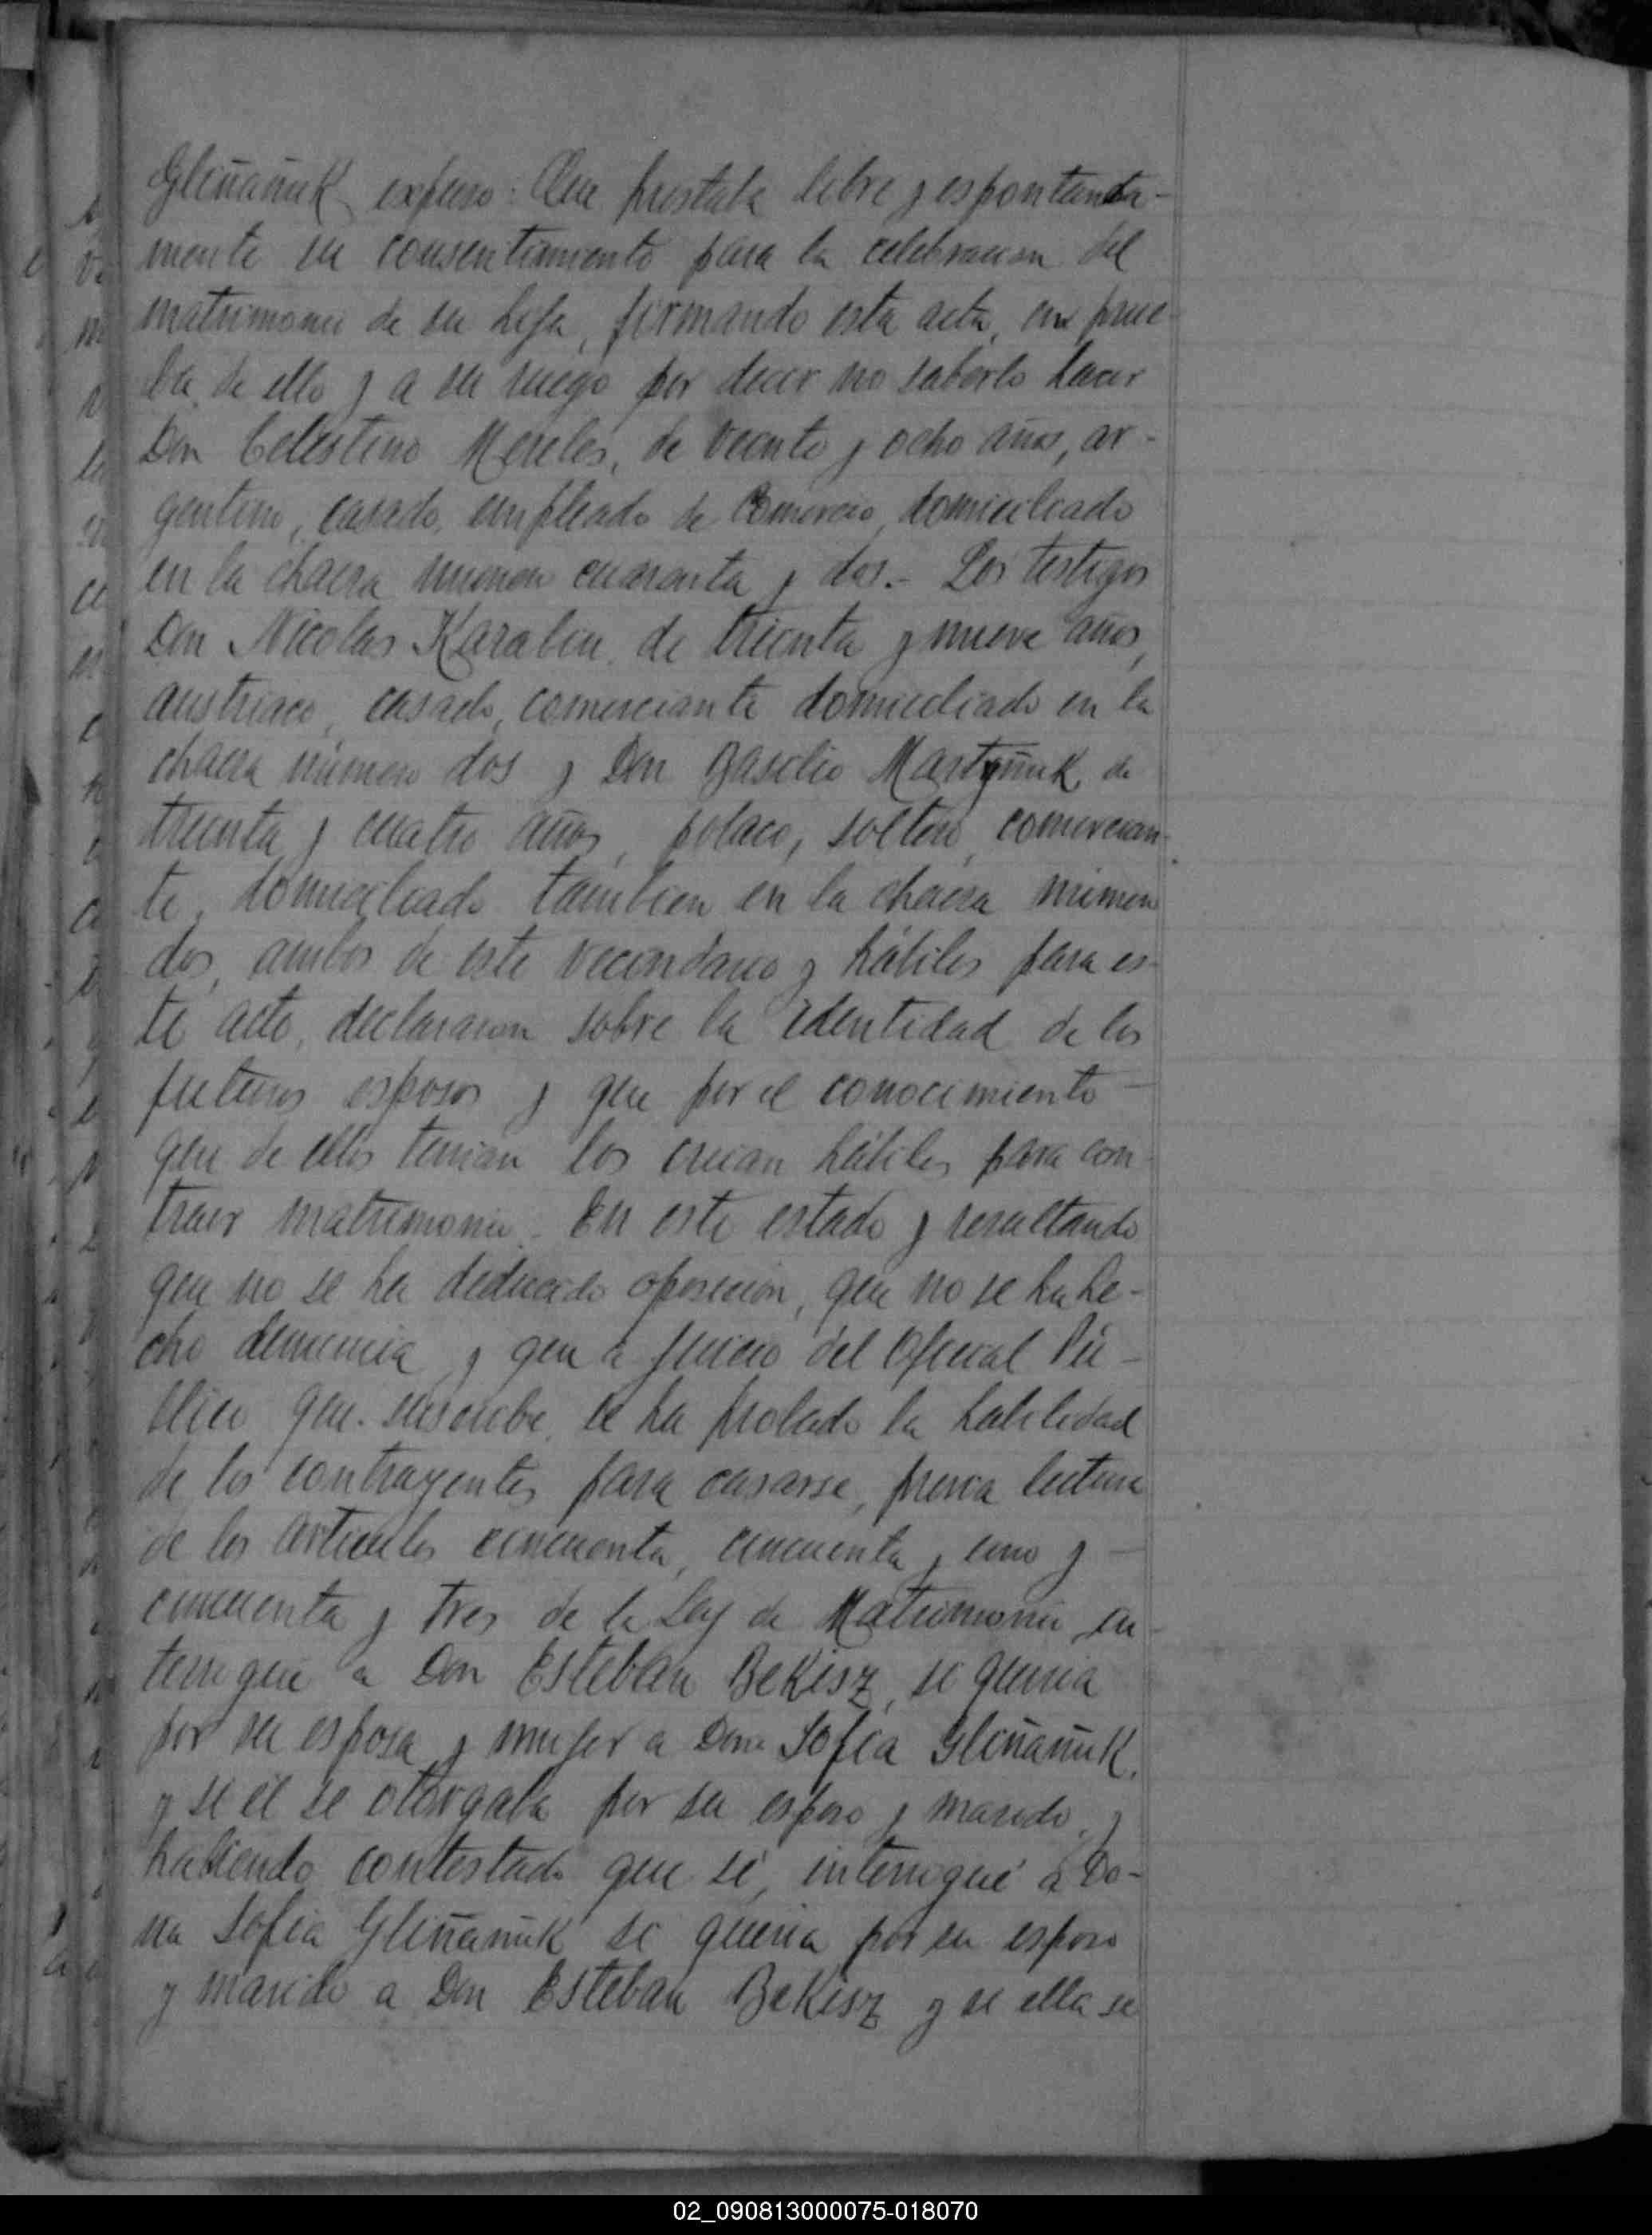 Gliñañuk expuso: Que prestaba libre y espontanea-
mente su consentimiento para la celebracion del
matrimonio de su hija, firmando esta acta, en prue-
ba de ello y a su ruego por decir no saberlo hacer
Don Celestino Mereles, de veinte y ocho años, ar-
gentino, casado, empleado de Comercio, domiciliado
en la chacra numero cuarenta y dos.- Los testigos
Don Nicolas Karabin, de treinta y nueve años,
austriaco, casado, comerciante domiciliado en la
chacra número dos y Don Basilio Martyñuk, de
treinta y cuatro años, polaco, soltero, comercian-
te, domiciliado tambien en la chacra número
dos, ambos de este vecindario y hábiles para es-
te acto, declararon sobre la identidad de los
futuros esposos y que por el conocimiento
que de ellos tenian los creian hábiles para con-
traer matrimonio. En este estado y resultando
que no se ha deducido oposicion, que no se ha he-
cho denuncia y que a juicio del Oficial Pú-
blico que suscribe, se ha probado la habilidad
de los contrayentes para casarse, previa lectura
de los articulos cincuenta, cincuenta y uno y
cincuenta y tres de la Ley de Matrimonio, in-
terrogué a Don Esteban Bekisz, si queria
por su esposa y mujer a Doña Sofia Gliñañuk,
y si él se otorgaba por su esposo y marido, y
habiendo contestado que sí, interrogué a Do-
ña Sofia Gliñañuk si queria por su esposo
y marido a Don Esteban Bekisz y si ella se
02_090813000075-018070